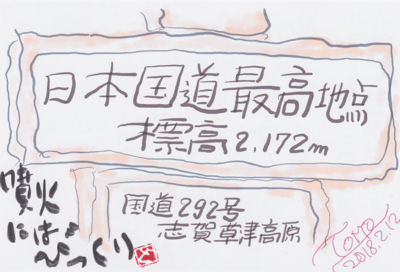 日本国道最高地点
標高2,172m
国道292号
志賀草津高原
噴火
にはは
びっくり
Tomo
2018.2.12